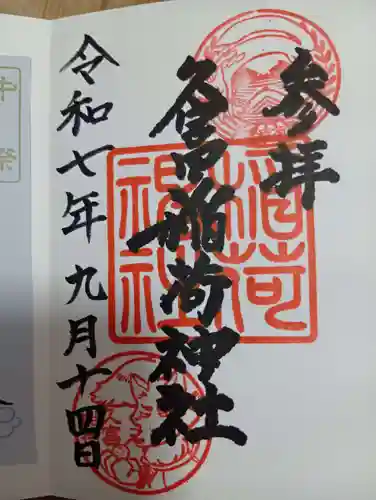 参拝
久富稲荷神社
令和七年九月十四日
稲荷
神社